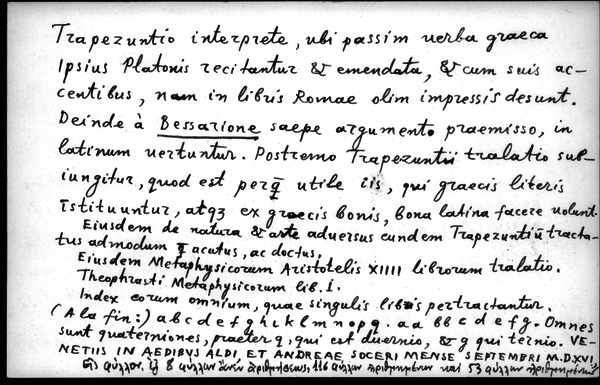 Trapezuntio interprete, ubi passim verba graeca
Ipsius Platonis recitantur & emendata, & cum suis ac-
centibus, nam in libris Romae olim impressis desunt.
Deinde à Bessarione saepe argumento praemisso, in
latinum vertuntur. Postremo Trapezuntii tralatio sub-
iungitur, quod est perq̄ utile iis, qui graecis literis
īstituuntur, atqꝫ ex graecis bonis, bona latina facere volunt.
Eiusdem de natura & arte adversus eundem Trapezuntiū tracta-
tus admodum q̄ acutus, ac doctus.
Eiusdem Metaphysicorum Aristotelis XIIII librorum tralatio.
Theophrasti Metaphysicorum lib. I.
Index eorum omnium, quae singulis libris pertractantur.
(A la fin:) a b c d e f g h i k l m n o p q. aa bb c d e f g. Omnes
sunt quaterniones, praeter q, qui est duernio, & g qui ternio. VE-
NETIIS IN AEDIBVS ALDI, ET ANDREAE SOCERI MENSE SEPTEMBRI M.D.XVI,
φύλλον, 8 φύλλων ἄνευ ἀριθμήσεως, 116 φύλλων ἠριθμημένων καὶ 53 φύλλων ἠριθμημένων